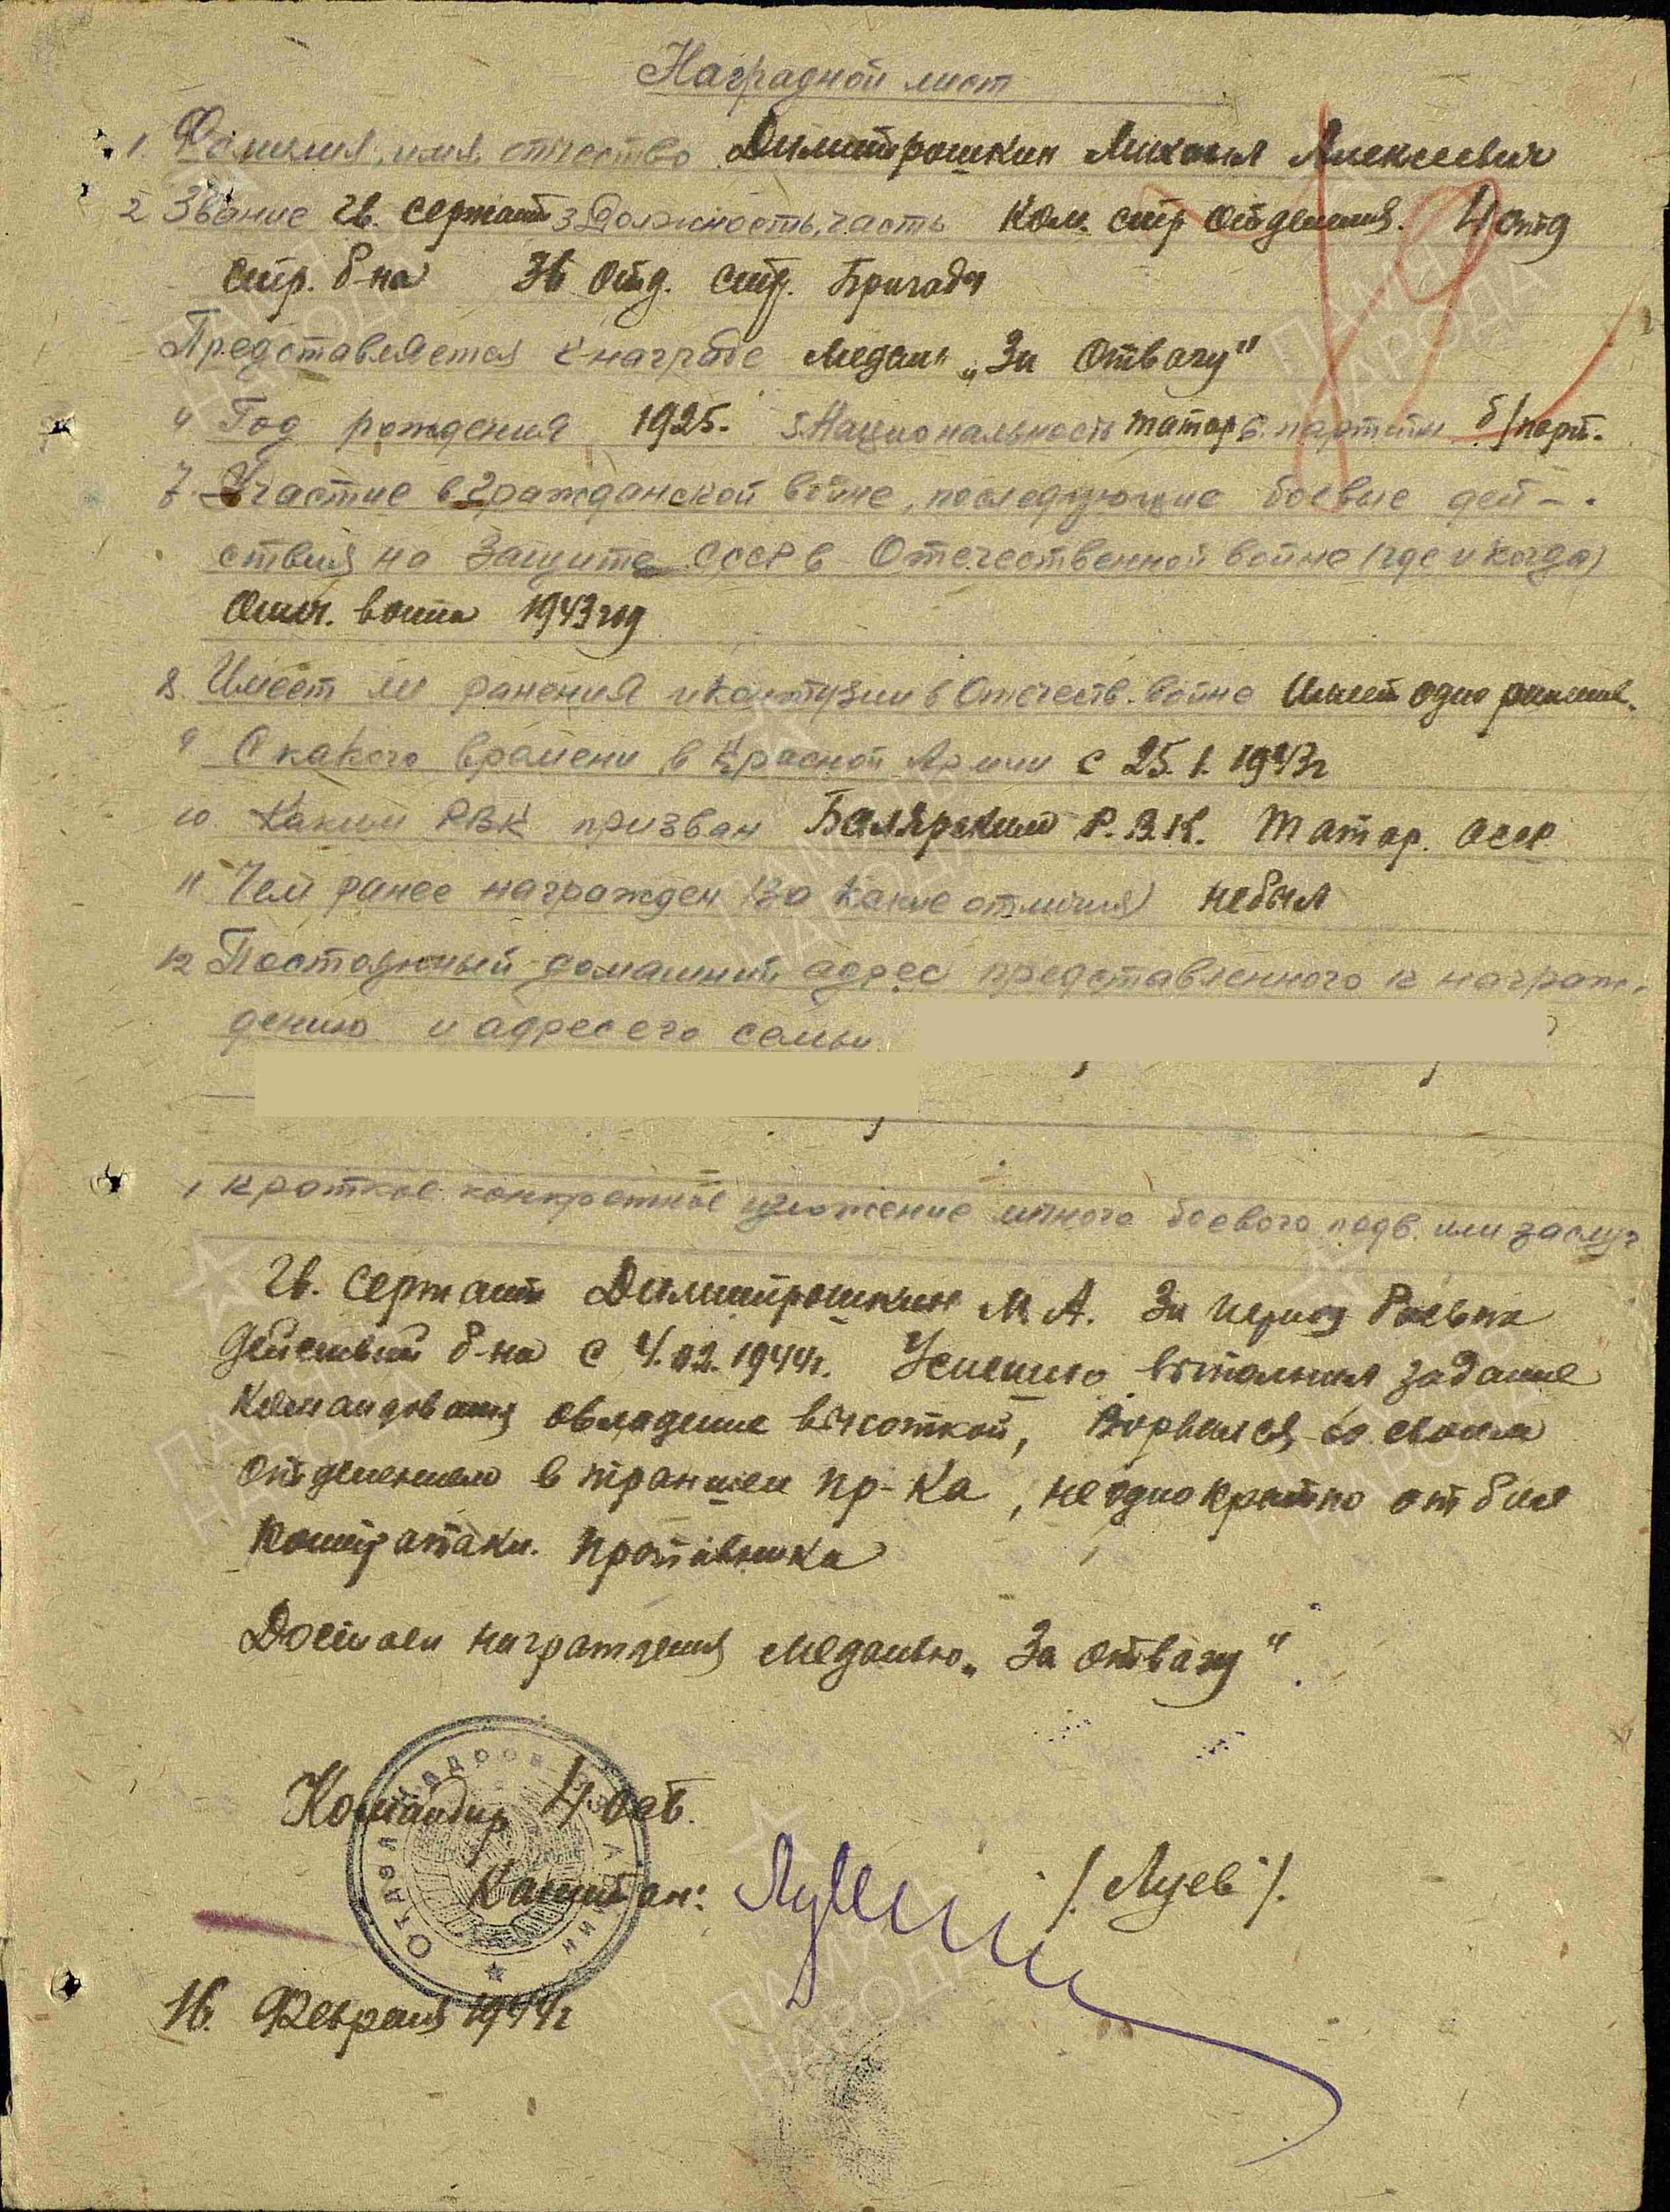 Наградной лист
1. Фамилия, имя, отчество Димитрошкин Михаил Алексеевич
2 Звание Гв. Сержант 3 Должность, часть Ком. стр отделения. 4 отд
стр. б-на 36 отд. стр. Бригады
Представляется к награде Медали „За Отвагу"
4 Год рождения 1925. 5. Национальность татар 6. партийн б/парт.
7 Участие в гражданской войне, последующие боевые дей-
ствия на защите СССР в Отечественной войне (где и когда)
Отеч. война 1943 год
8. Имеет ли ранения и контузии в Отечеств. войне Имеет одно ранение.
9 С какого времени в Красной Армии с 25.1.1943г
10 Каким РВК призван Билярским Р.В.К. Татар. АССР
11 Чем ранее награжден (за какие отличия) не был
12 Постоянный домашний адрес представленного к награж-
дению и адрес его семьи
1 Краткое конкретное изложение личного боевого подв. или заслуг
Гв. Сержант Димитрошкин М.А. За период боевых
действий б-на с 4.02.1944г. Успешно выполнил задание
командования овладение высоткой, Ворвался со своим
отделением в траншеи пр-ка, неоднократно отбил
контратаки противника
Достоен награждения медалью „За отвагу".
Командир 4 осб.
Капитан: /Луев/.
16. Февраля 1944г
Отдел кадров
ПАМЯТЬ НАРОДА